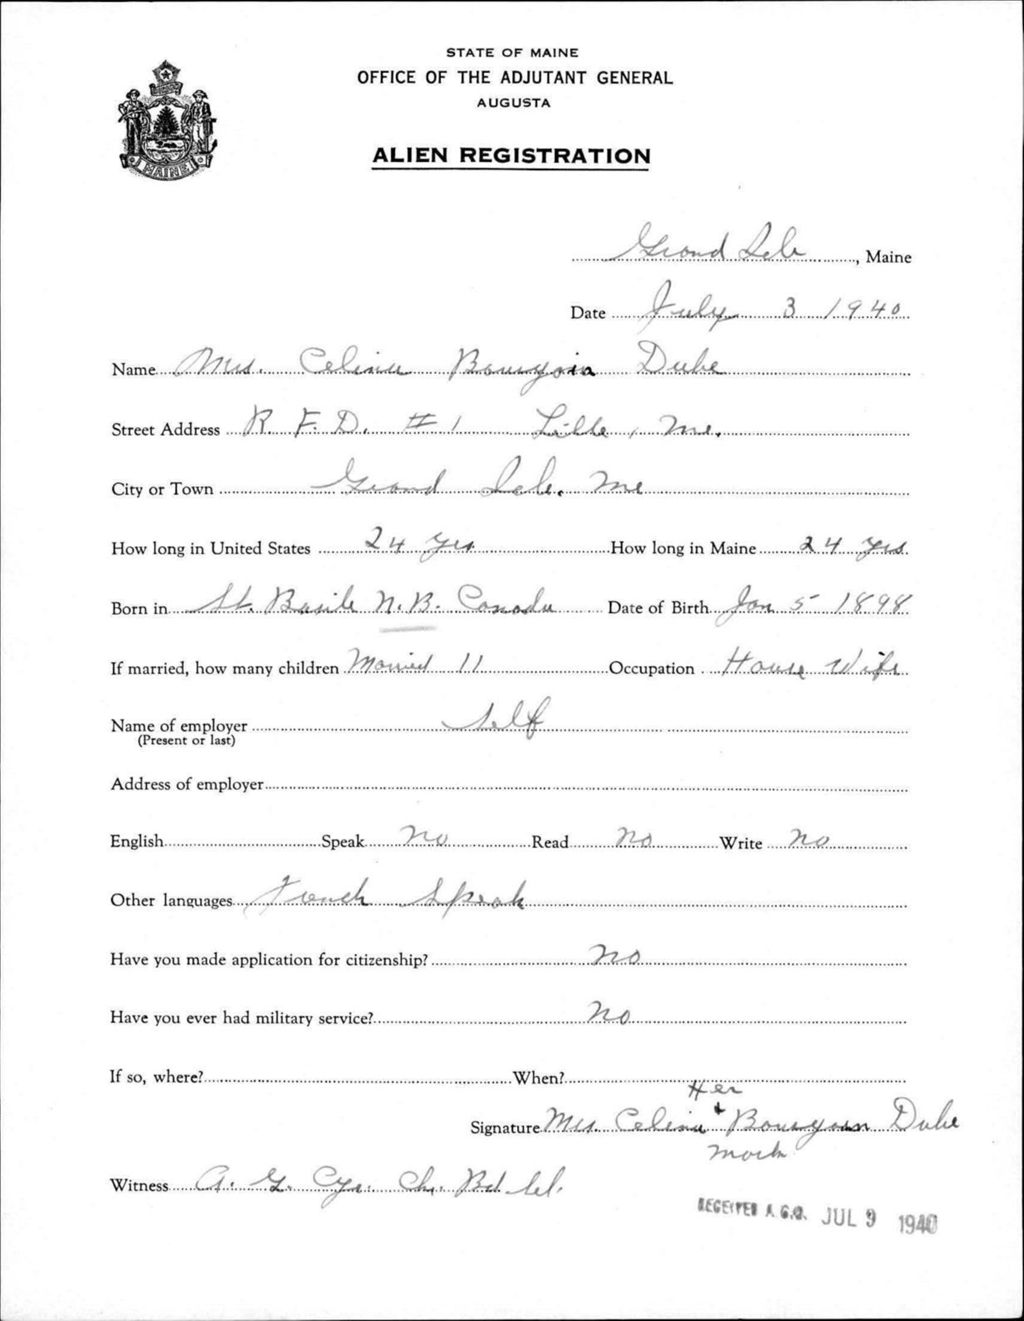 STATE OF MAINE
OFFICE OF THE ADJUTANT GENERAL
AUGUSTA
ALIEN REGISTRATION
MAINE
Grand Isle, Maine
Date July 3 1940
Name Mrs. Celina Bourgoin Dube
Street Address R. F. D. #1 Lille, Me.
City or Town Grand Isle, Me
How long in United States 24 yrs How long in Maine 24 yrs.
Born in St. Basile N.B. Canada Date of Birth Jan 5 1898
If married, how many children Married 11 Occupation House Wife
Name of employer Self
(Present or last)
Address of employer
English Speak No Read No Write No
Other languages French Speak
Have you made application for citizenship? No
Have you ever had military service? No
If so, where? When?
Her
Signature Mrs. Celina + Bourgoin Dube
mark
Witness A. G. Cyr. Ch. Bd
RECEIVED A.G.O. JUL 9 1940